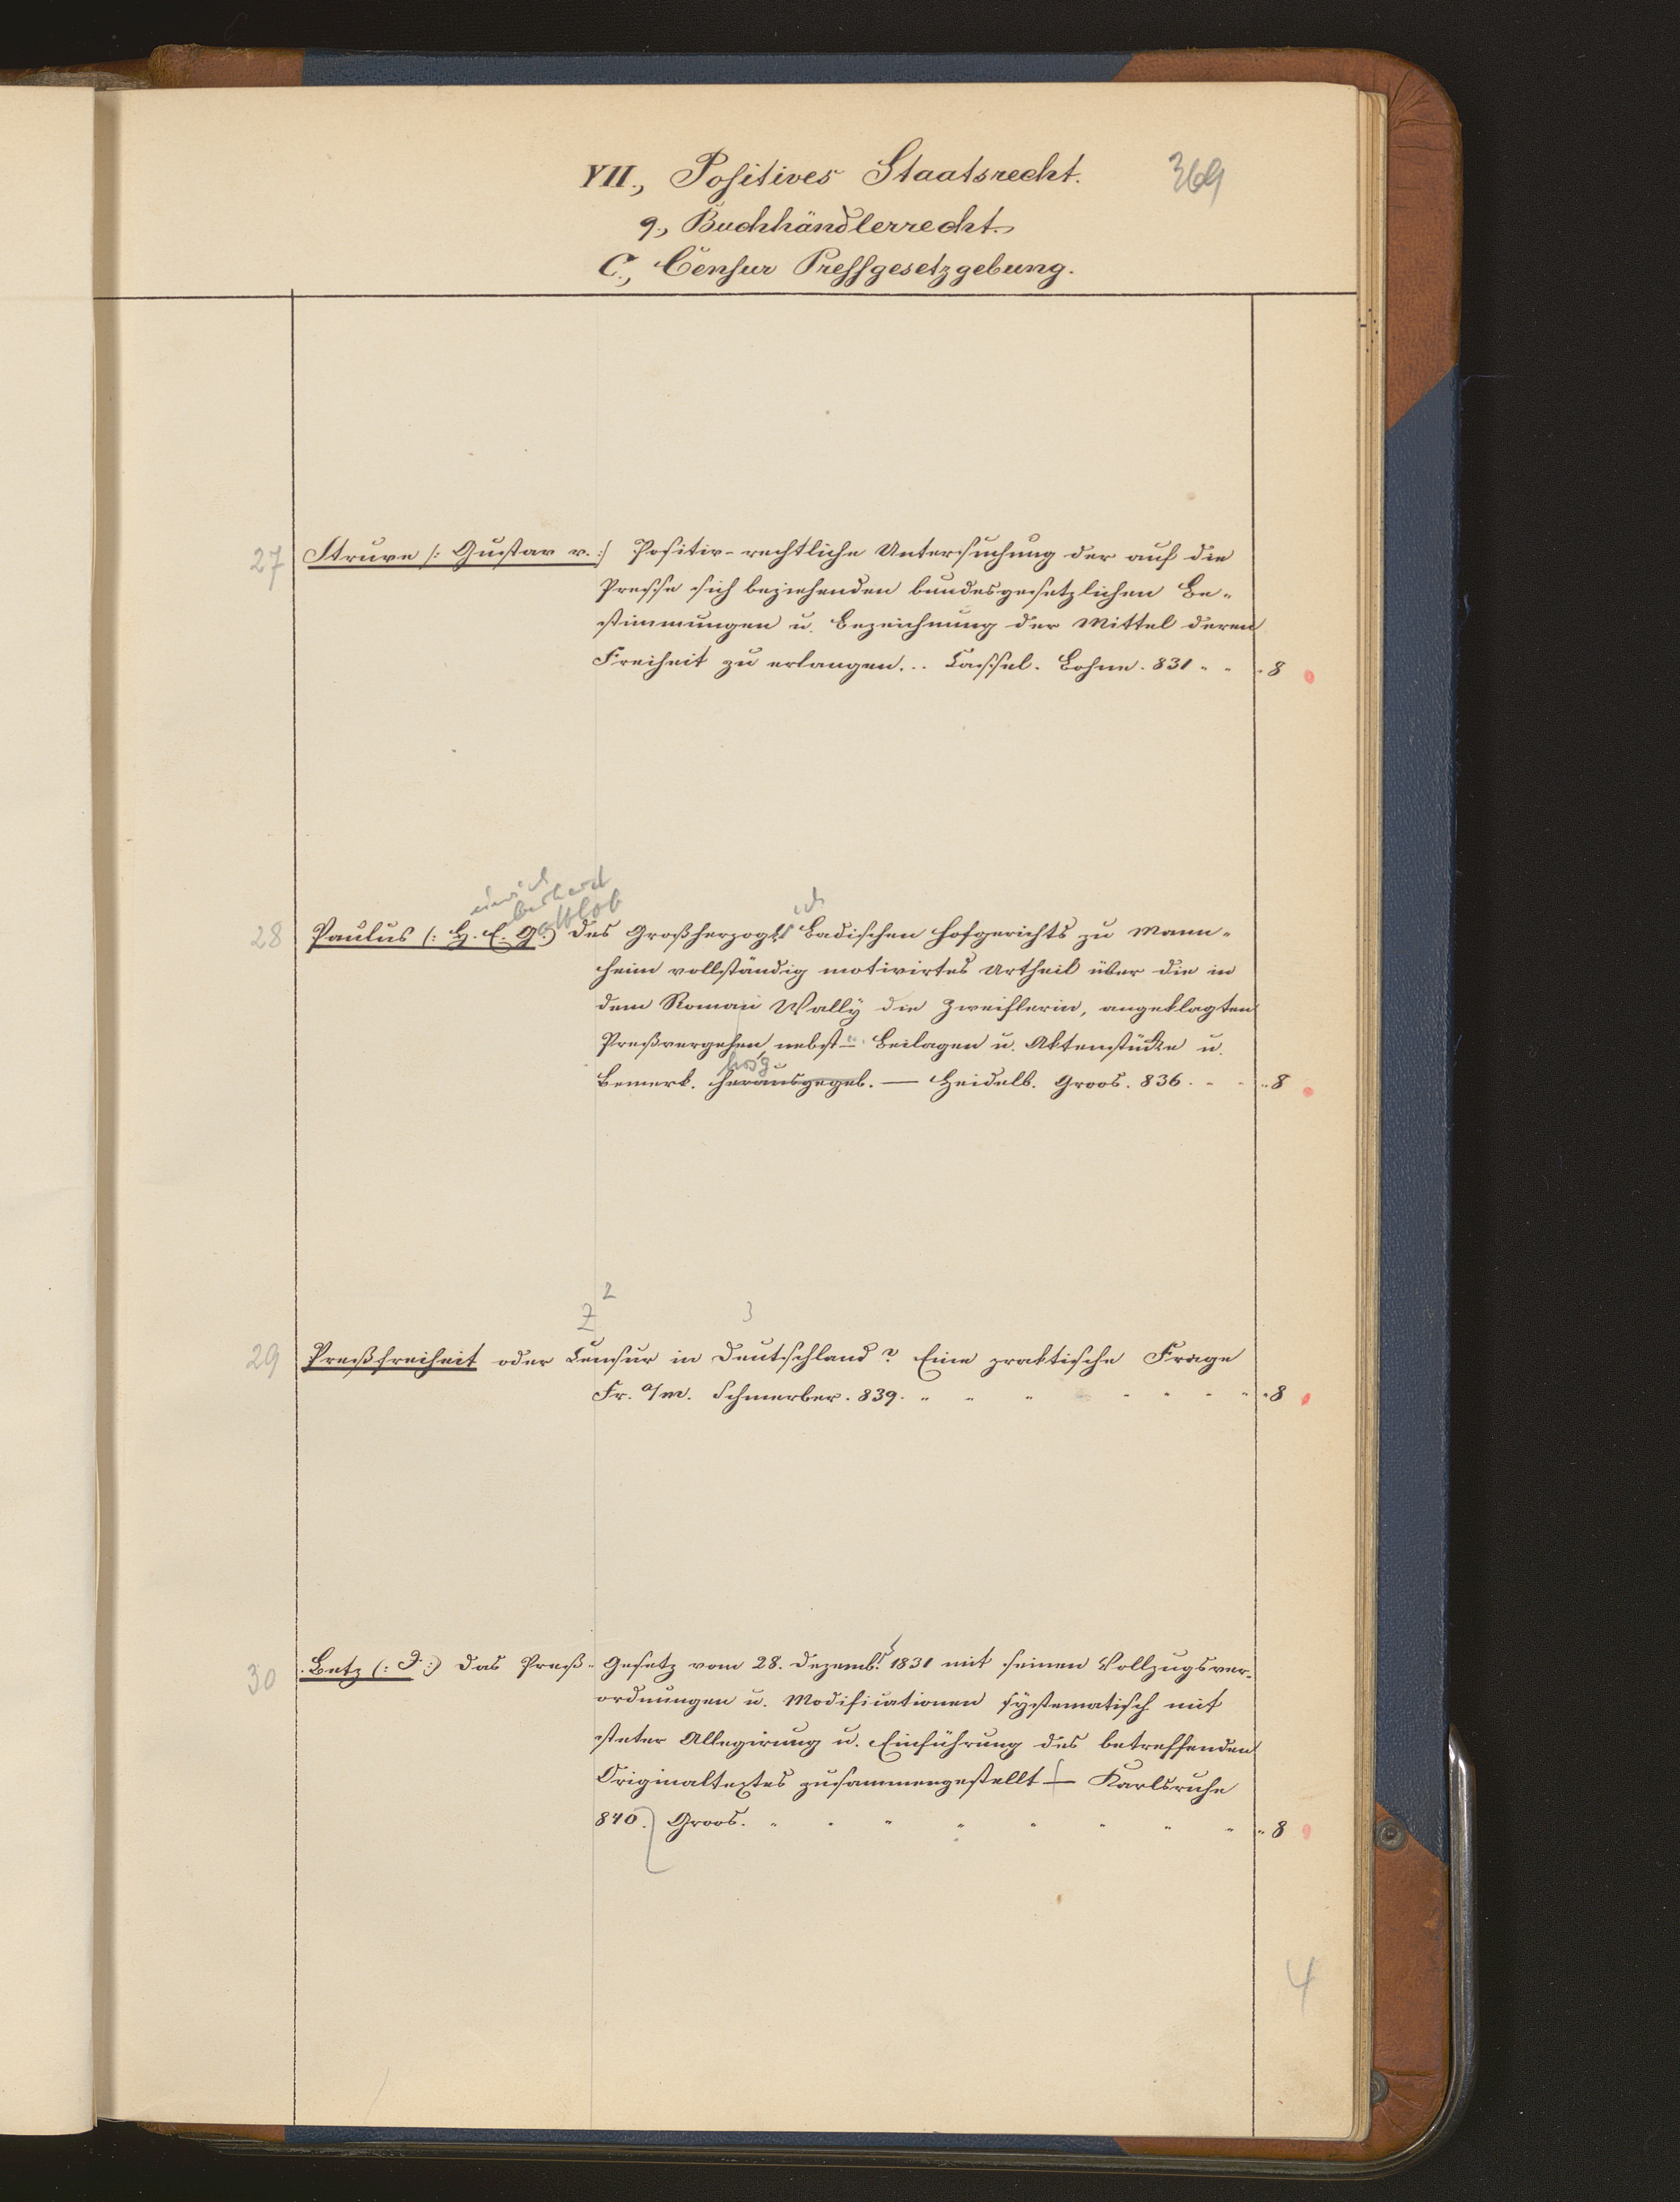 VII., Positives Staatsrecht. 369
9., Buchhändlerrecht.
C., Censur Pressgesetzgebung.
27 Struve /: Gustav v. :/ Positiv-rechtliche Untersuchung der auf die
Presse sich beziehenden bundesgesetzlichen Be-
stimmungen u. Bezeichnung der Mittel deren
Freiheit zu erlangen. .. Cassel. Bohne. 831 " " " 8
einrich
berhard
ottlob ich
28 Paulus (: H. E. G :) Des Großherzogl Badischen Hofgerichts zu Mann-
heim vollständig motivirtes Urtheil über die in
dem Roman Wally die Zweiflerin, angeklagten
Preßvergehen nebst Beilagen u. Aktenstücke u.
hrsg
Bemerk. herausgegeb. — Heidelb. Groos. 836. " " " 8
2
Z 3
29 Preßfreiheit oder Censur in Deutschland? Eine praktische Frage
Fr. a/m. Schmerber. 839. " " " " " " " " 8
30 Betz (: J. :) Das Preß-Gesetz vom 28. Dezemb. 1831 mit seinen Vollzugsver-
ordnungen u. Modificationen systematisch mit
steter Allegirung u. Einführung des betreffenden
Originaltextes zusammengestellt — Karlsruhe
840. Groos. " " " " " " " " " 8
4